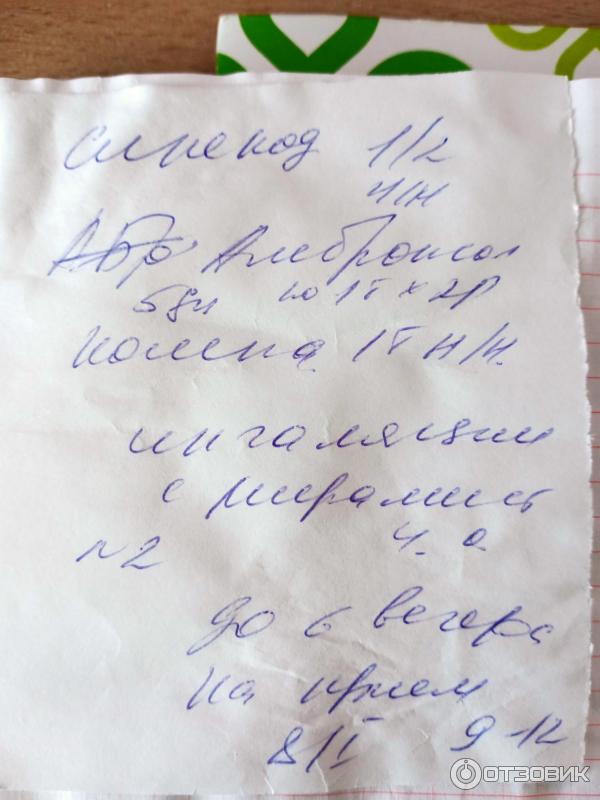 Синекод 1/2
ч/н
Або Амброксол
5дн по 1т х 2р
1т н/н.
ингаляции
с мирамист
ч. о.
N2
до 6 вечера
на прием
8/I 9-12
ОТЗОВИК